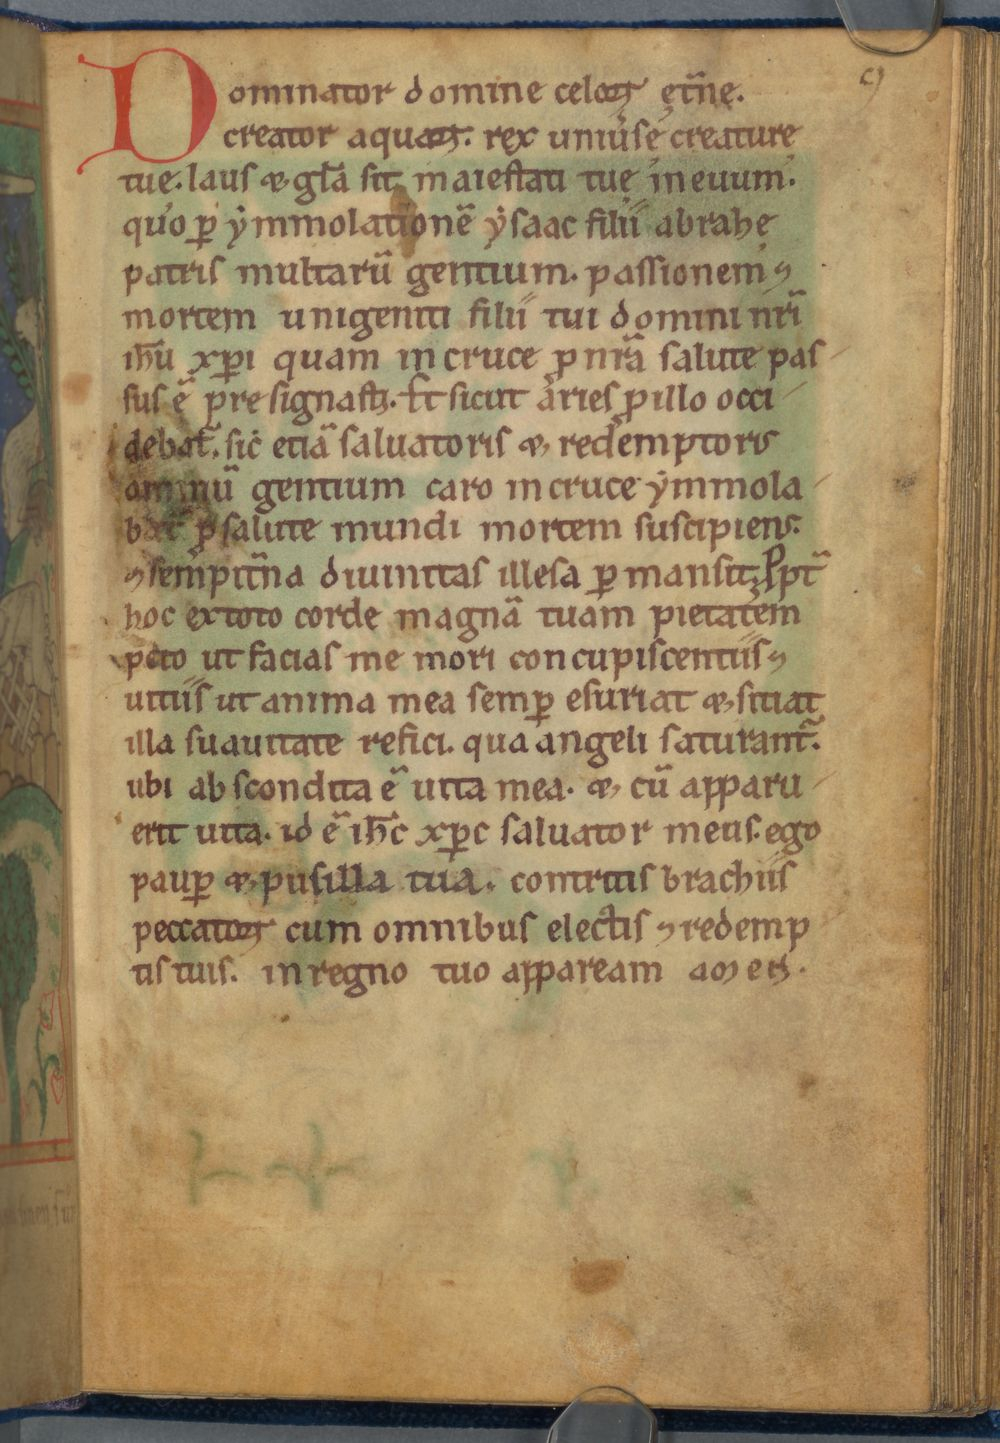 9
Dominator domine celoꝝ ęt̄nę.
creator aquaꝝ. rex uniu̓se̓ creaturę
tue. laus ⁊ gl̄a sit maiestati tuę in euum.
quo ꝑ ẏmmolationē ẏsaac filii abrahę
patris multarū gentium. passionem ⁊
mortem unigeniti filii tui domini nr̄i
ih̄u xp̄i quam in cruce ꝓ nr̄a salute pas
sus ē presignastꝫ. Et sicut aries ꝓ illo occi
debat᷑. sic etiā saluatoris ⁊ redemptoris
omniū gentium caro in cruce ẏmmola
bat᷑ ꝓ salute mundi mortem suscipiens.
⁊ sempit̄na diuinitas illesa ꝑmansit. Ꝓpt̄
hoc ex toto corde magnā tuam pietatem
peto ut facias me mori concupiscentiis ⁊
uitiis ut anima mea semꝑ esuriat ⁊ sitiat
illa suauitate refici. qua angeli saturant᷑.
ubi abscondita ē uita mea. ⁊ cū apparu
erit uita. id ē ih̄c xp̄c saluator meus. ego
pauꝑ ⁊ pusilla tua. contritis brachiis
peccatoꝝ cum omnibus electis ⁊ redemp
tis tuis. in regno tuo appaream amen.